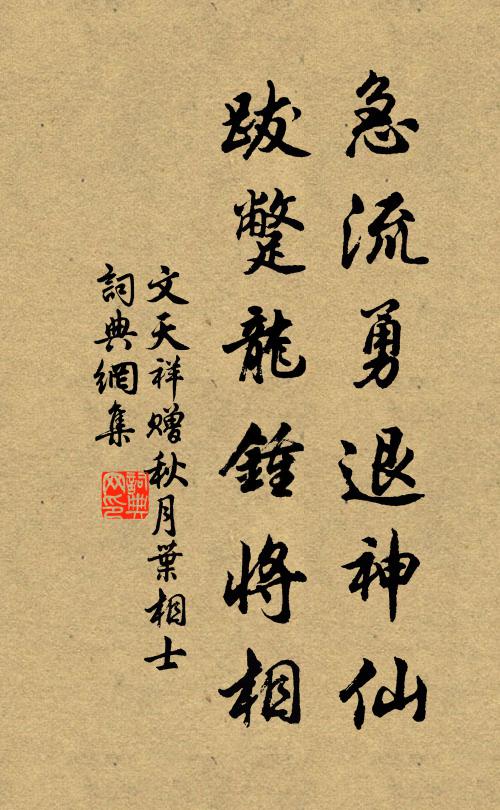 急流勇退神仙
跋蹩龍鍾將相
文天祥赠秋月葉相士
詞典網集
詞典网印